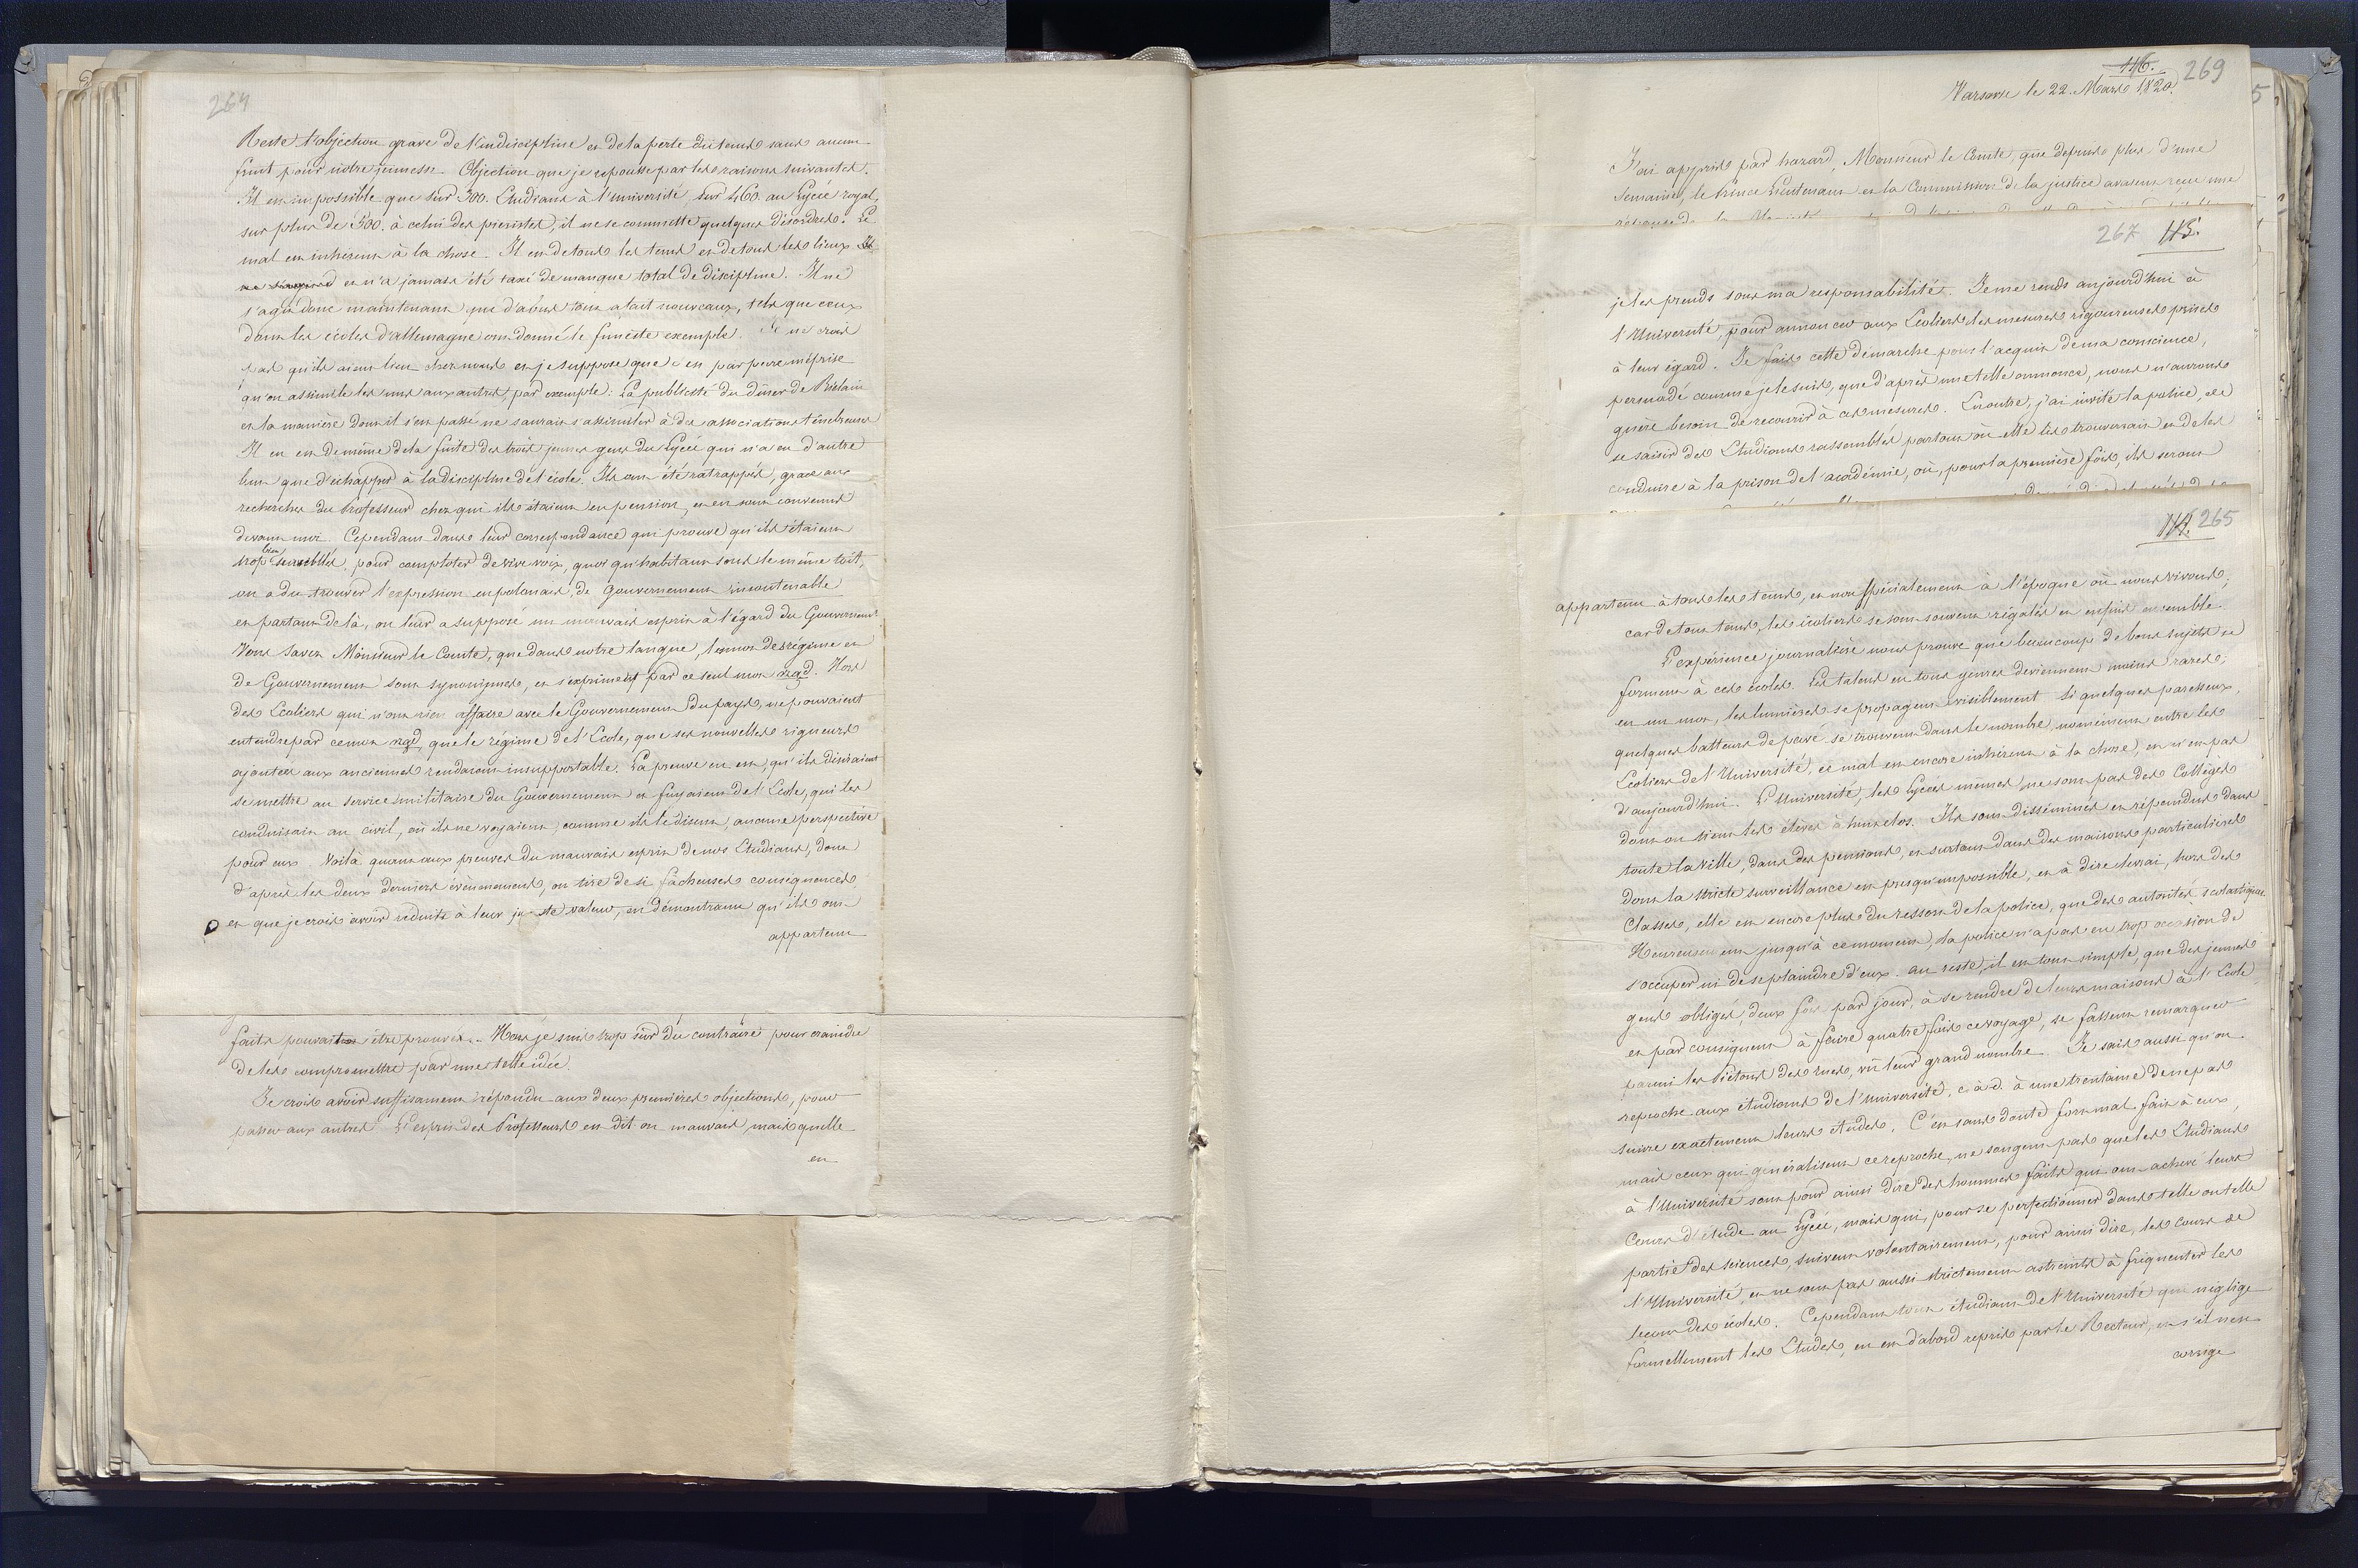 264
Reste l'objection grave de l'indiscipline et de la perte du tems sans aucun
fruit pour notre jeunesse. Objection que je repousse par les raisons suivantes.
Il est impossible que sur 300. Etudians à l'université, sur 460. au Lycée royal,
sur plus de 500. à celui des piaristes, il ne se commette quelques désordres. Le
mal est inhérent à la chose. Il est de tous les tems et de tous les lieux
et n'a jamais été taxé de manque total de discipline. Il ne
s'agit donc maintenant que d'abus tout à fait nouveaux, tels que ceux
dont les écoles d'allemagne ont donné le funeste exemple. Je ne crois
pas qu'ils aient lieu chez nous et je suppose que c'est par pure méprise
qu'on assimile les uns aux autres, par exemple: La publicité du diner de Bielain
et la manière dont il s'est passé ne sauraient s'assimiler à des associations ténébreuses
Il en est de même de la fuite des trois jeunes gens du Lycée qui n'a eu d'autre
but que d'échapper à la discipline de l'école. Ils ont été ratrappés, grace aux
recherches du Professeur chez qui ils étaient en pension, et en sont convenus
devant moi. Cependant dans leur correspondance qui prouve qu'ils étaient
trop bien surveillés pour comploter de vive voix, quoi qu'habitant sous le même toit,
on a du trouver l'expression en polonais, de Gouvernement insoutenable
et partant de là, on leur a supposé un mauvais esprit à l'égard du Gouvernement
Vous savez Monsieur le Comte, que dans notre langue, les mots de régime et
de Gouvernement sont synonymes, et s'expriment par ce seul mot rząd. Nos
des Ecoliers qui n'ont rien affaire avec le Gouvernement du pays, ne pouvaient
entendre par ce mot rząd, que le régime de l'Ecole, que ses nouvelles rigueurs
ajoutées aux anciennes rendaient insupportable. La preuve en est, qu'ils désiraient
se mettre au service militaire du Gouvernement et fuyaient de l'Ecole, qui les
conduisait au civil, où ils ne voyaient, comme ils le disent, aucune perspective
pour eux. Voilà quant aux preuves du mauvais esprit de nos Etudians, dont
d'après les deux derniers évènements, on tire de si fâcheuses conséquences
et que je crois avoir réduits à leur juste valeur, en démontrant qu'ils ont
appartenu
faits pouvaient être prouvés. Mais je suis trop sûr du contraire pour craindre
de les compromettre par une telle idée.
Je crois avoir suffisament répondu aux deux premières objections, pour
passer aux autres. L'esprit des Professeurs est dit on mauvais, mais quelle
en
116. 269
Varsovie le 22. Mars 1820.
J'ai appris par hazard, Monsieur le Comte, que depuis plus d'une
semaine, le Prince Lieutenant et la Commission de la justice avaient reçu une
267 115.
je les prends sous ma responsabilité. Je me rends aujourd'hui à
l'Université, pour annoncer aux Ecoliers les mesures rigoureuses prises
à leur égard. Je fais cette démarche pour l'acquit de ma conscience,
persuadé comme je le suis, que d'après une telle annonce, nous n'aurons
guère besoin de recourir à ces mesures. En outre, j'ai invité la police, de
se saisir des Etudians rassemblés partout où elle les trouverait et de les
conduire à la prison de l'académie, où, pour la première fois, ils seront
114. 265
appartenu à tous les tems, et non spécialement à l'époque où nous vivons;
car de tout tems, les écoliers se sont souvent régalés et enfuis ensemble.
L'expérience journalière nous prouve que beaucoup de bons sujets se
forment à ces écoles. Les talens en tous genres deviennent moins rares;
en un mot, les lumières se propagent visiblement. Si quelques paresseux,
quelques batteurs de pavé se trouvent dans le nombre, nomément entre les
Ecoliers de l'Université, ce mal est encore inhérent à la chose, et n'est pas
d'aujourd'hui. L'Université, les Lycées mêmes, ne sont pas des Collèges
dont on tient les élèves à huis clos. Ils sont disséminés et répendus dans
toute la ville, dans des pensions, et surtout dans des maisons particulières
dont la stricte surveillance est presqu'impossible, et à dire le vrai, hors des
Classes, elle est encore plus du ressort de la police, que des autorités scolastiques.
Heureusement jusqu'à ce moment, la police n'a pas eu trop occasion de
s'occuper ni de se plaindre d'eux. au reste, il est tout simple, que des jeunes
gens obligés, deux fois par jour, à se rendre de leurs maisons à l'Ecole
et par conséquent à faire quatre fois ce voyage, se fassent remarquer
parmi les piétons des rues, vû leur grand nombre. Je sais aussi qu'on
reproche aux étudians de l'université, c.à.d. à une trentaine de ne pas
suivre exactement leurs études. C'est sans doute fort mal fait à eux,
mais ceux qui généralisent ce reproche, ne songent pas que les Etudians
à l'Université sont pour ainsi dire des hommes faits qui ont achevé leurs
Cours d'étude au Lycée, mais qui, pour se perfectionner dans telle ou telle
partie des sciences, suivent volontairement, pour ainsi dire, les cours de
l'Université, et ne sont pas aussi strictement astreints à fréquenter les
leçons des écoles. Cependant tout étudiant de l'Université qui néglige
formellement les Etudes, en est d'abord repris par le Recteur, et s'il n'en
corrige